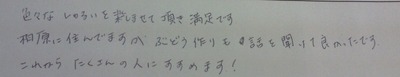 色々なしゅるいを楽しませて頂き満足です
相原に住んでますが ぶどう作りもお話を聞けて良かったです
これから たくさんの人にすすめます!